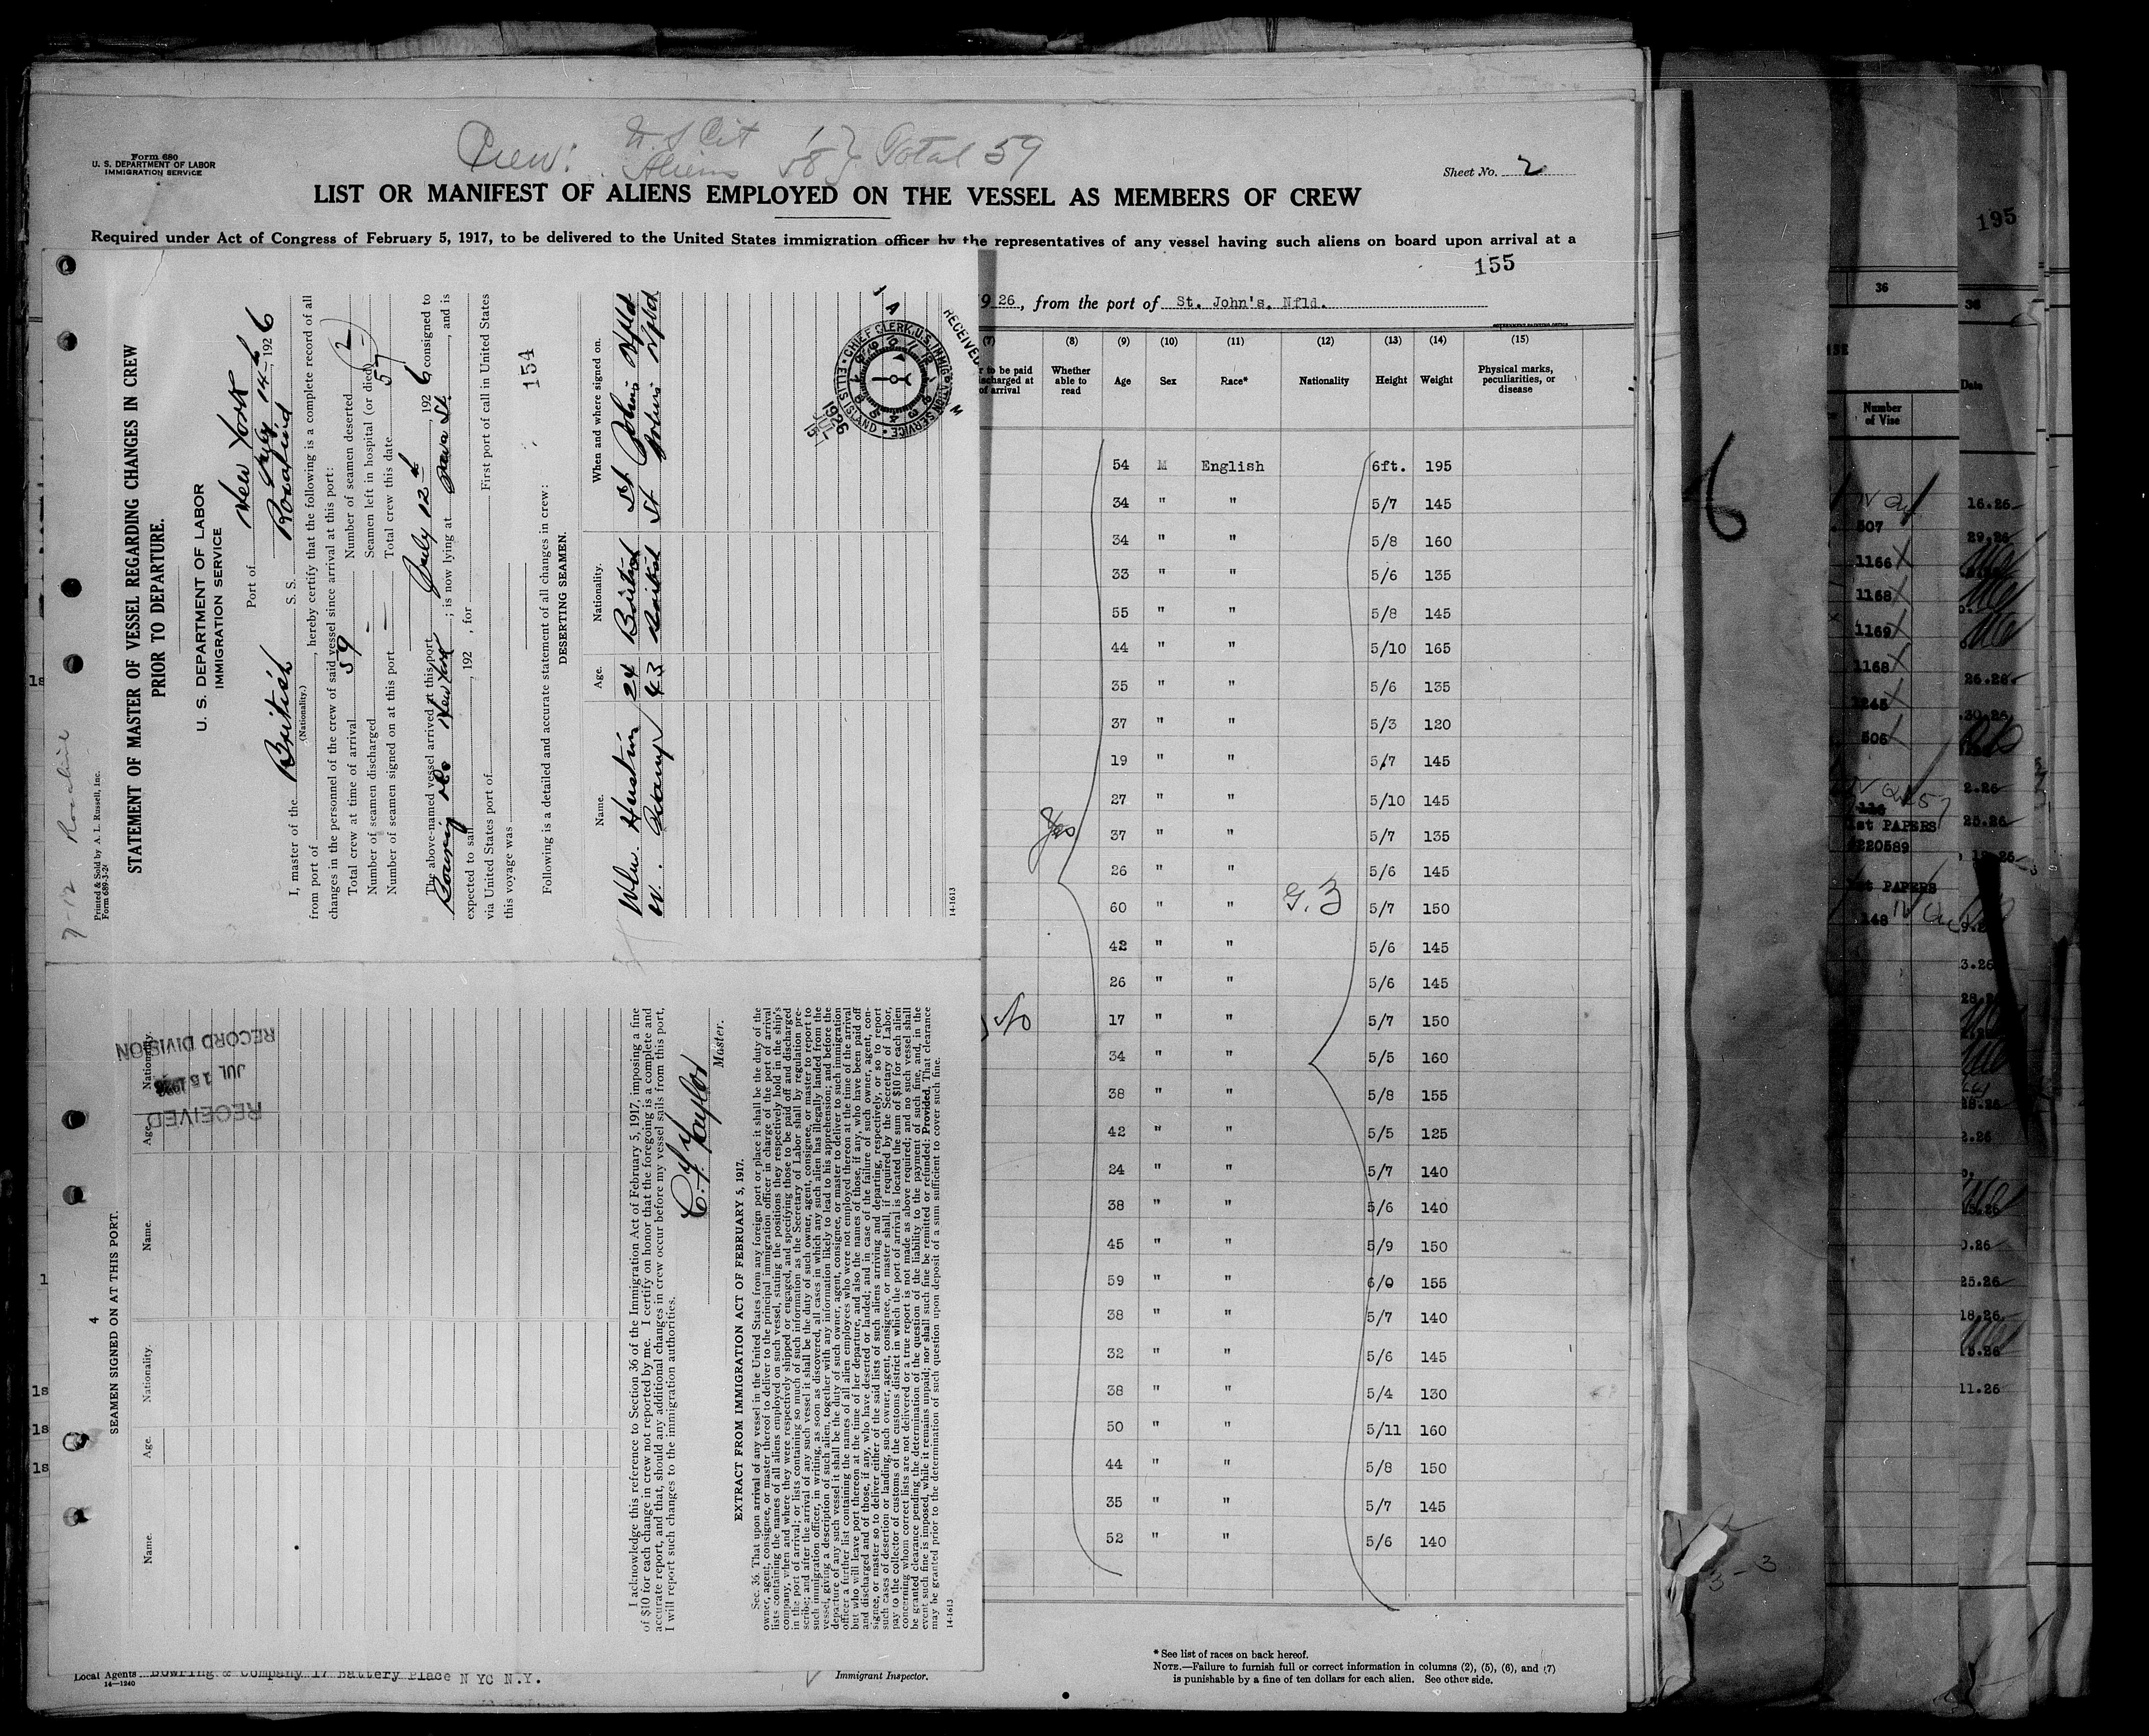 Form 680
U. S. DEPARTMENT OF LABOR
IMMIGRATION SERVICE
Crew: U.S Cit 1
Aliens 58 } Total 59
Sheet No. 2
LIST OR MANIFEST OF ALIENS EMPLOYED ON THE VESSEL AS MEMBERS OF CREW
Required under Act of Congress of February 5, 1917, to be delivered to the United States immigration officer by the representatives of any vessel having such aliens on board upon arrival at a
155
1926, from the port of St. John's, Nfld.
GOVERNMENT PRINTING OFFICE
(8) (9) (10) (11) (12) (13) (14) (15)
Whether able to read Age Sex Race* Nationality Height Weight Physical marks, peculiarities, or disease
54 M English 6ft. 195
34 " " 5/7 145
34 " " 5/8 160
33 " " 5/6 135
55 " " 5/8 145
44 " " 5/10 165
35 " " 5/6 135
37 " " 5/3 120
19 " " 5/7 145
27 " " 5/10 145
Yes
37 " " 5/7 135
26 " " 5/6 145
60 " " 5/7 150
42 " " 5/6 145
26 " " 5/6 145
17 " " 5/7 150
34 " " 5/5 160
38 " " 5/8 155
42 " " 5/5 125
24 " " 5/7 140
38 " " 5/6 140
45 " " 5/9 150
59 " " 6/0 155
38 " " 5/7 140
32 " " 5/6 145
38 " " 5/4 130
50 " " 5/11 160
44 " " 5/8 150
35 " " 5/7 145
52 " " 5/6 140
*See list of races on back hereof.
NOTE.—Failure to furnish full or correct information in columns (2), (5), (6), and (7)
is punishable by a fine of ten dollars for each alien. See other side.
Immigrant Inspector.
Local Agents Bowring & Company 17 Battery Place N YC N.Y.
14—1240
7-12 Rosalind
Printed & Sold by A. L. Russell, Inc.
Form 689-3-2
STATEMENT OF MASTER OF VESSEL REGARDING CHANGES IN CREW
PRIOR TO DEPARTURE.
U. S. DEPARTMENT OF LABOR
IMMIGRATION SERVICE
Port of New York
July 14th 1926
I, master of the British S. S. Rosalind
(Nationality.)
from port of , hereby certify that the following is a complete record of all
changes in the personnel of the crew of said vessel since arrival at this port:
Total crew at time of arrival 59 Number of seamen deserted 2
Number of seamen discharged – Seamen left in hospital (or died) –
Number of seamen signed on at this port – Total crew this date 57
The above-named vessel arrived at this port July 12th, 1926 consigned to
Bowring & Co New York; is now lying at Java St., and is
expected to sail , 192 , for First port of call in United States
via United States port of
this voyage was
154
Following is a detailed and accurate statement of all changes in crew:
DESERTING SEAMEN.
Name. Age. Nationality. When and where signed on.
Wm. Hustins 24 British St Johns Nfld
W. 43 British St Johns Nfld
14-1613
CHIEF CLERK, U.S. IMMIGRATION SERVICE
ELLIS ISLAND
RECEIVED
1926 JUL 15
4
SEAMEN SIGNED ON AT THIS PORT.
Name. Age. Nationality. Name. Age. Nationality.
RECEIVED
JUL 15 1926
RECORD DIVISION
I acknowledge this reference to Section 36 of the Immigration Act of February 5, 1917, imposing a fine
of $10 for each change in crew not reported by me. I certify on honor that the foregoing is a complete and
accurate report, and that, should any additional changes in crew occur before my vessel sails from this port,
I will report such changes to the immigration authorities.
Master.
EXTRACT FROM IMMIGRATION ACT OF FEBRUARY 5, 1917.
Sec. 36. That upon arrival of any vessel in the United States from any foreign port or place it shall be the duty of the
owner, agent, consignee, or master thereof to deliver to the principal immigration officer in charge of the port of arrival
lists containing the names of all aliens employed on such vessel, stating the positions they respectively hold in the ship's
company, when and where they were respectively shipped or engaged, and specifying those to be paid off and discharged
in the port of arrival; or lists containing so much of such information as the Secretary of Labor shall by regulation pre-
scribe; and after the arrival of any such vessel it shall be the duty of such owner, agent, consignee, or master to report to
such immigration officer, in writing, as soon as discovered, all cases in which any such alien has illegally landed from the
vessel, giving a description of such alien, together with any information likely to lead to his apprehension; and before the
departure of any such vessel it shall be the duty of such owner, agent, consignee, or master to deliver to such immigration
officer a further list containing the names of all alien employees who were not employed thereon at the time of the arrival
but who will leave port thereon at the time of her departure, and also the names of those, if any, who have been paid off
and discharged and of those, if any, who have deserted or landed; and in case of the failure of such owner, agent, con-
signee, or master so to deliver either of the said lists of such aliens arriving and departing, respectively, or so to report
such cases of desertion or landing, such owner, agent, consignee, or master shall, if required by the Secretary of Labor,
pay to the collector of customs of the customs district in which the port of arrival is located the sum of $10 for each alien
concerning whom correct lists are not delivered or a true report is not made as above required; and no such vessel shall
be granted clearance pending the determination of the question of the liability to the payment of such fine, and, in the
event such fine is imposed, while it remains unpaid; nor shall such fine be remitted or refunded: Provided, That clearance
may be granted prior to the determination of such question upon deposit of a sum sufficient to cover such fine.
14-1613
195
36
Number of Vise
507
1166
1168
1169
1168
1245
506
1st PAPERS
220589
PAPERS
148
36
Date
16.26
29.26
26.26
30.26
2.26
25.26
3.26
2.26
25.26
18.26
11.26